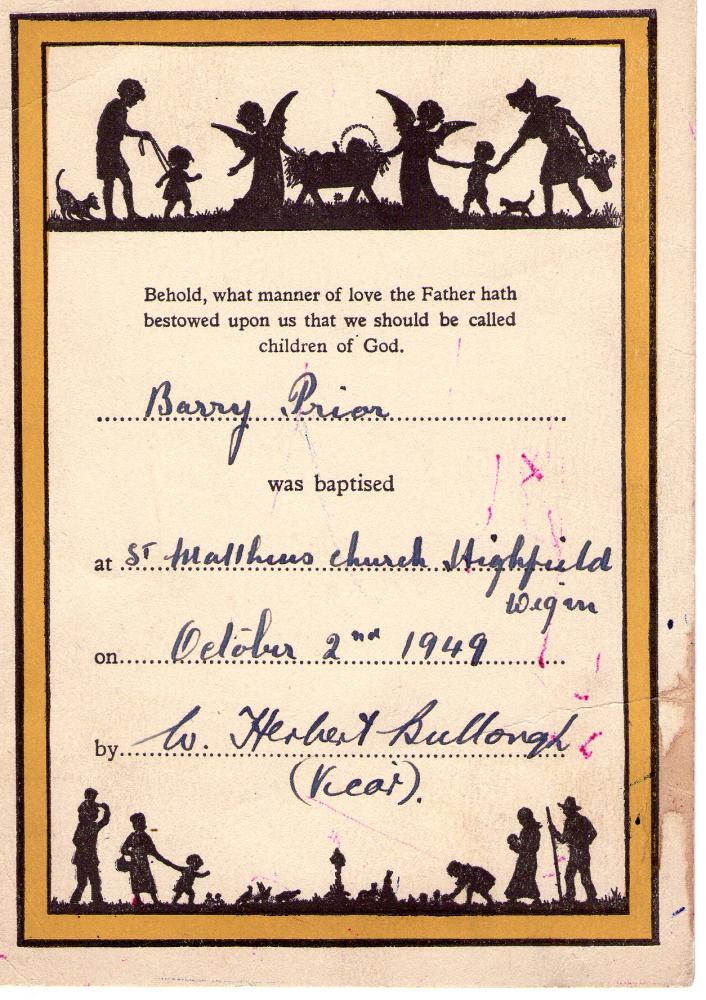 Behold, what manner of love the Father hath
bestowed upon us that we should be called
children of God.
Barry Prior
was baptised
at St Matthews church Highfield
Wigan
on October 2nd 1949
by W. Herbert Bullough
(Vicar).